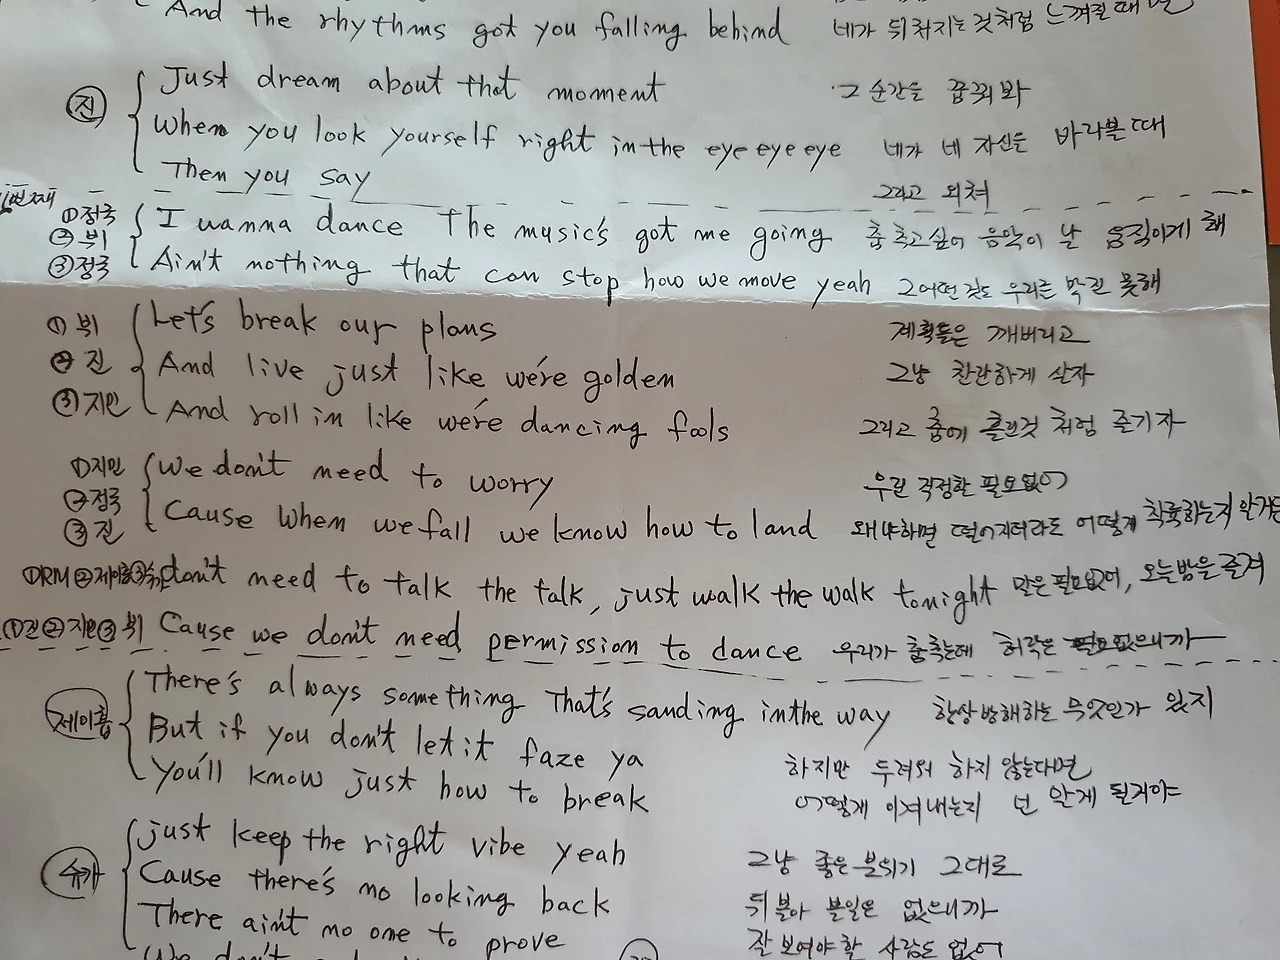 And the rhythms got you falling behind 네가 뒤처지는것처럼 느껴질때면
진 Just dream about that moment 그 순간을 꿈꿔 봐
When you look yourself right in the eye eye eye 네가 네 자신을 바라볼때
Then you say 그리고 외쳐
번째
①정국 I wanna dance The music's got me going 춤 추고싶어 음악이 날 움직이게 해
②뷔
③정국 Ain't nothing that can stop how we move yeah 그어떤것도 우리를 막진 못해
①뷔 Let's break our plans 계획들은 깨버리고
②진 And live just like we're golden 그냥 찬란하게 살자
③지민 And roll in like we're dancing fools 그리고 춤에 홀린것 처럼 즐기자
①지민 We don't need to worry 우린 걱정할 필요없어
②정국
③진 Cause when we fall we know how to land 왜냐하면 떨어지더라도 어떻게 착륙하는지 알거든
①RM ②제이홉 ③슈가 don't need to talk the talk, just walk the walk tonight 말은 필요없어, 오늘밤을 즐겨
①진 ②지민 ③뷔 Cause we don't need permission to dance 우리가 춤추는데 허락은 필요없으니까
제이홉 There's always something That's sanding in the way 항상 방해하는 무엇인가 있지
But if you don't let it faze ya 하지만 두려워 하지 않는다면
You'll know just how to break 어떻게 이겨내는지 넌 알게 될거야
슈가 just keep the right vibe yeah 그냥 좋은 분위기 그대로
Cause there's no looking back 뒤 돌아 볼일은 없으니까
There ain't no one to prove 잘 보여야 할 사람도 없어
We don't